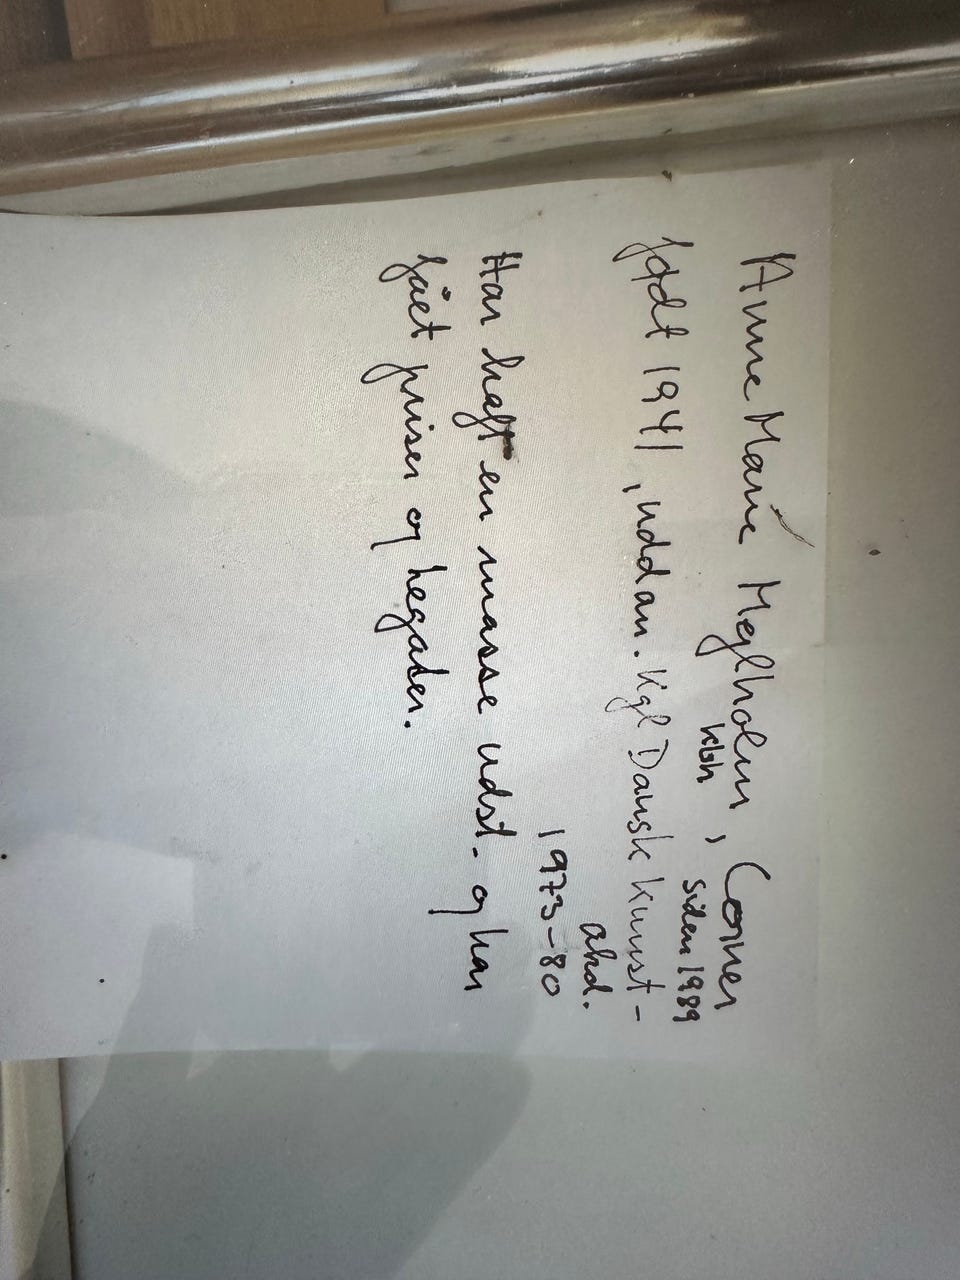 Anne Marie Mejlholm, Corner
kbh, siden 1989
født 1941, uddan. Kgl Dansk Kunst-
akd.
1973-80
Har haft en masse udst. og har
fået priser og legater.